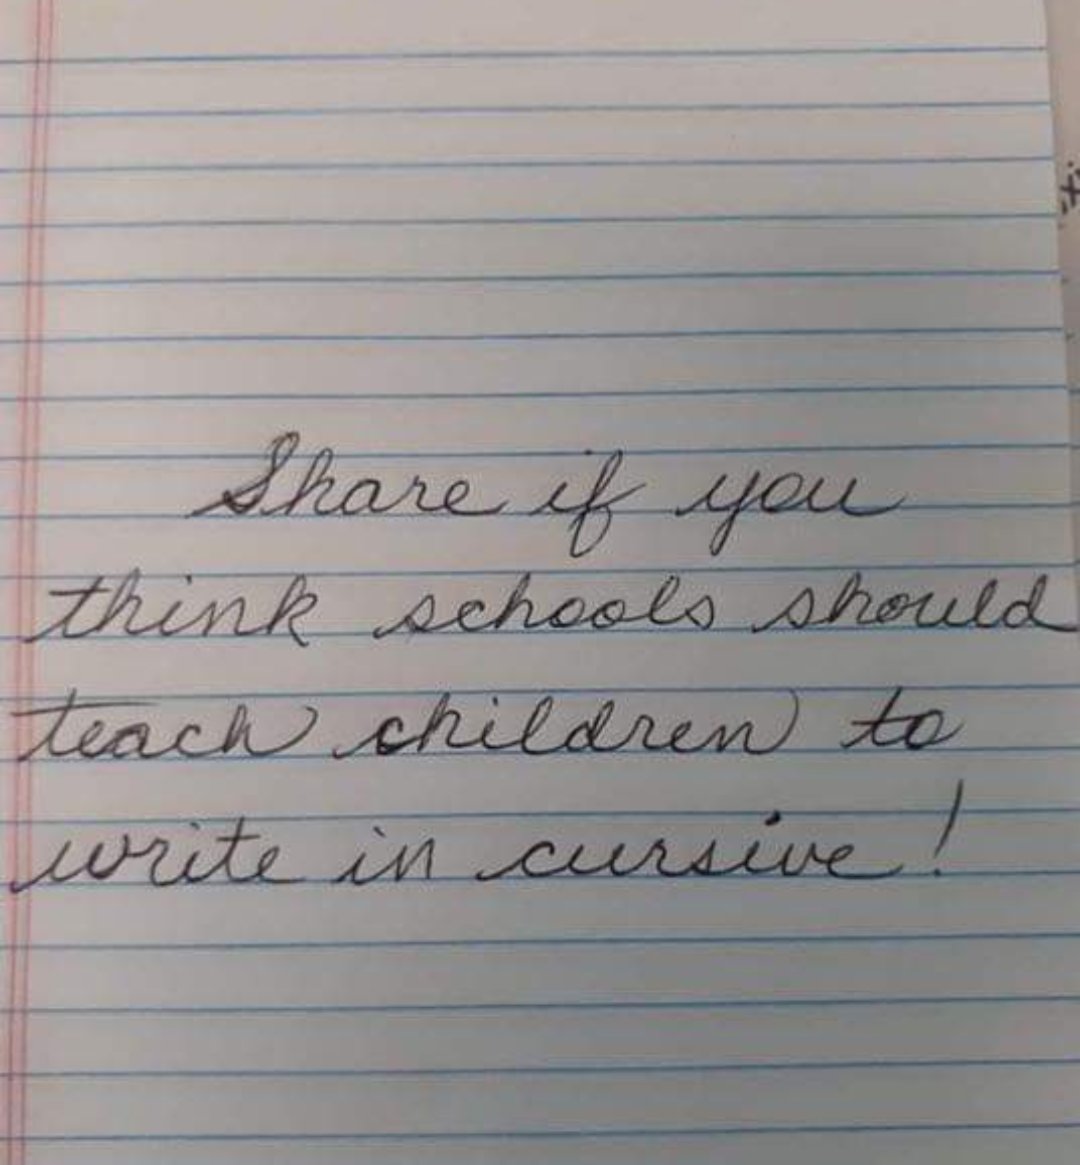 Share if you
think schools should
teach children to
write in cursive!